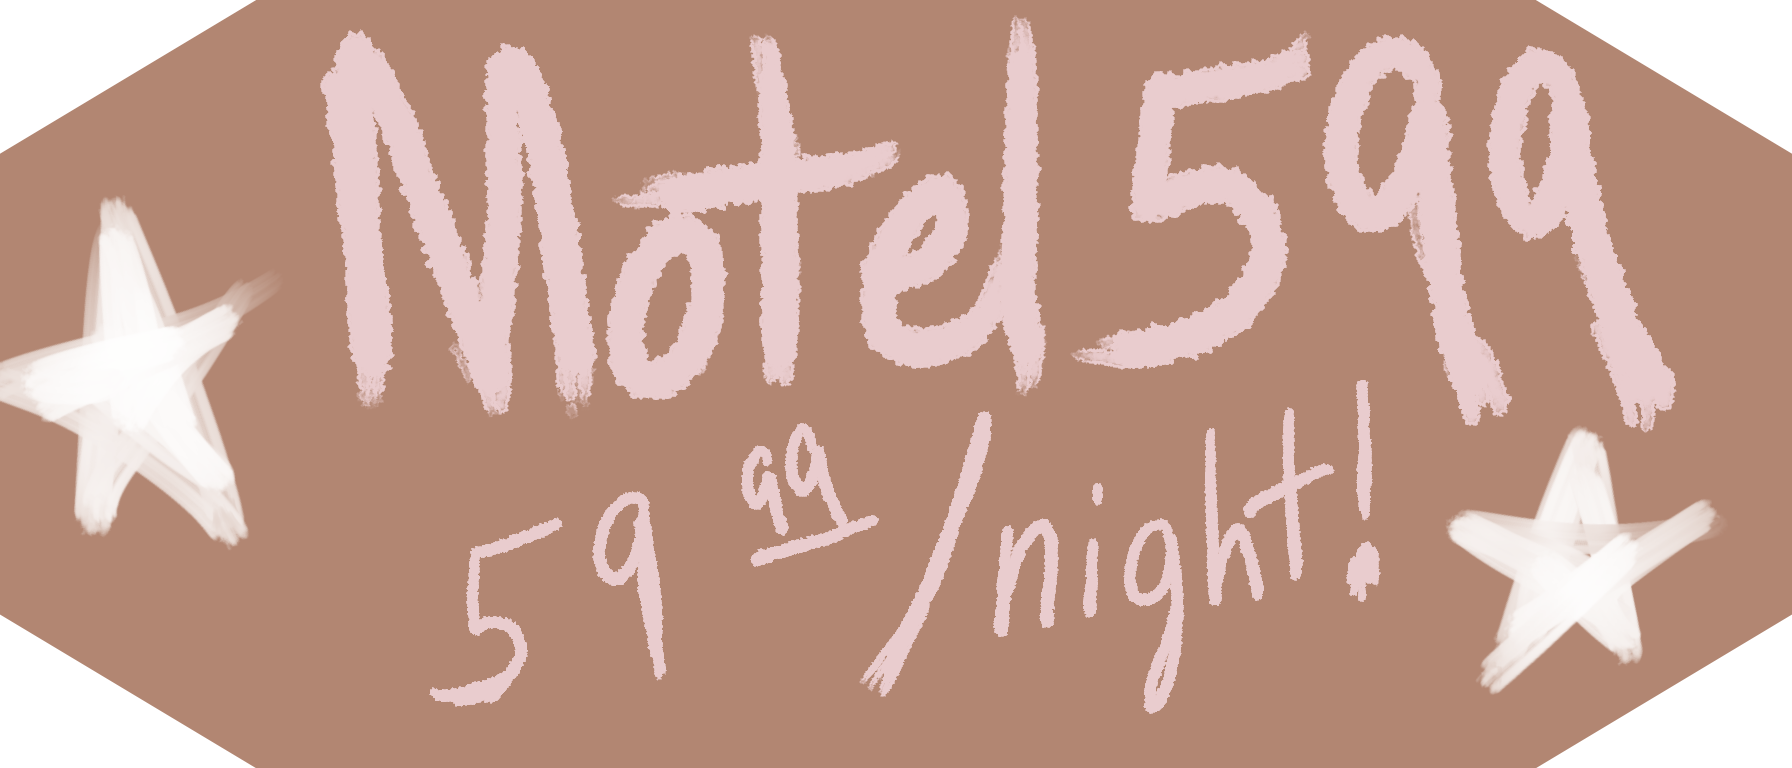 Motel 599
59 99/night!